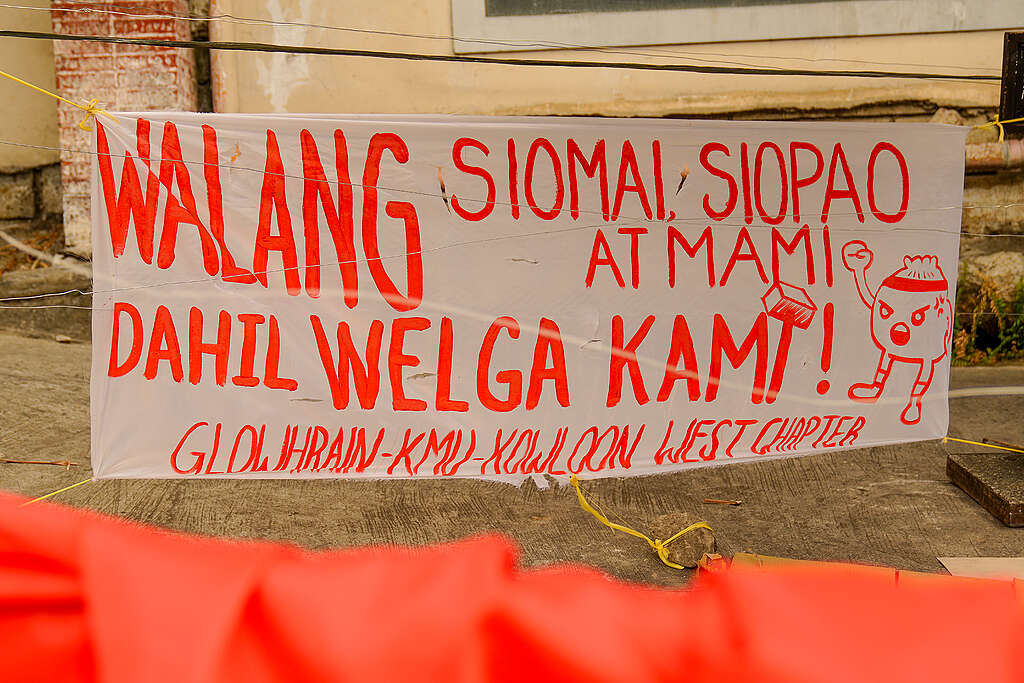 WALANG SIOMAI, SIOPAO
AT MAMI
DAHIL WELGA KAMI!
GLOWHRAIN-KMU-KOWLOON WEST CHAPTER